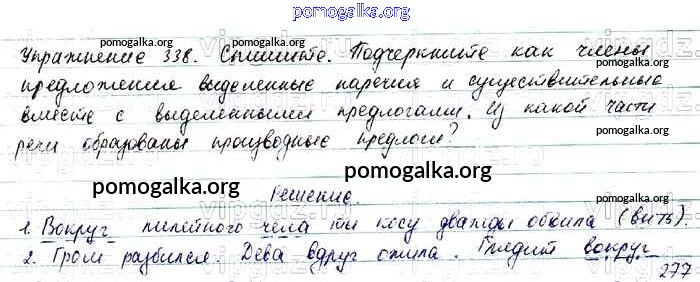 pomogalka.org
Упражнение 338. Спишите. Подчеркните как члены
предложения выделенные наречия и существительные
вместе с выделенными предлогами. Из какой части
речи образованы производные предлоги?
pomogalka.org
Решение.
1. Вокруг лилейного чела ты косу дважды обвила (вить).
2. Гром разбился. Дева вдруг ожила. Глядит вокруг
277